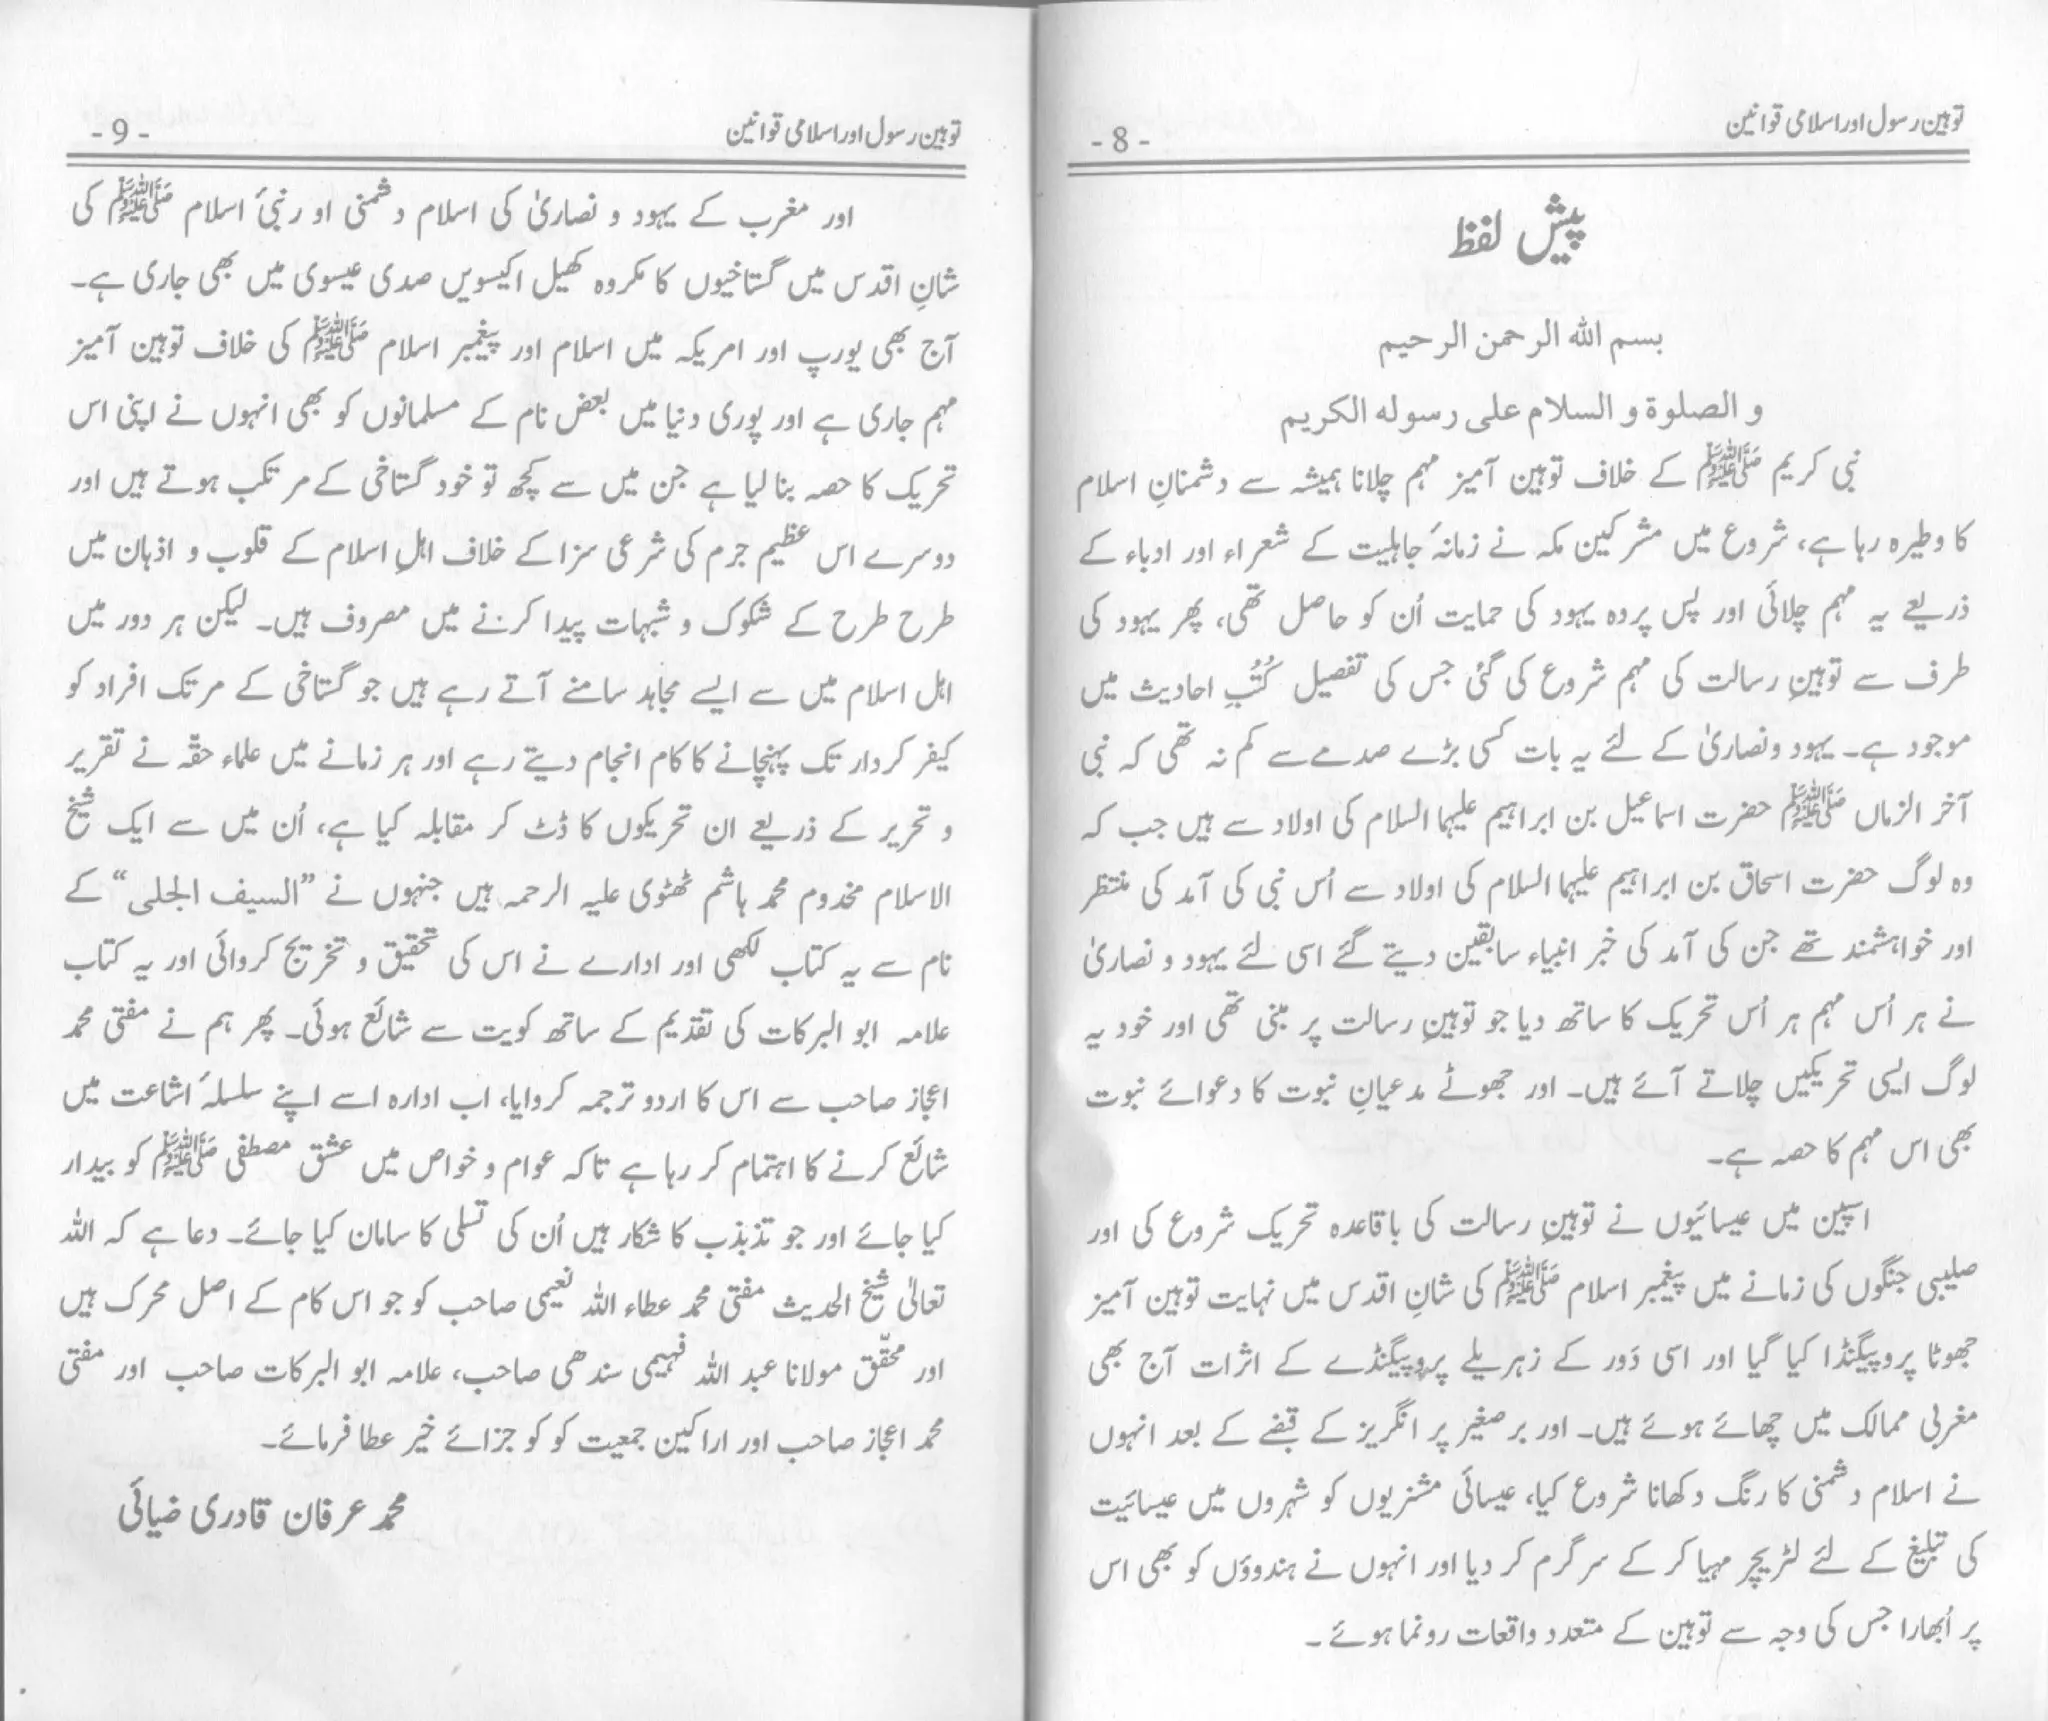 توہین رسول اور اسلامی قوانین
- 8 -
پیش لفظ
بسم اللہ الرحمن الرحیم
و الصلوۃ و السلام علی رسولہ الکریم
نبی کریم ﷺ کے خلاف توہین آمیز مہم چلانا ہمیشہ سے دشمنانِ اسلام
کا وطیرہ رہا ہے، شروع میں مشرکین مکہ نے زمانۂ جاہلیت کے شعراء اور ادباء کے
ذریعے یہ مہم چلائی اور پس پردہ یہود کی حمایت اُن کو حاصل تھی، پھر یہود کی
طرف سے توہینِ رسالت کی مہم شروع کی گئی جس کی تفصیل کُتُبِ احادیث میں
موجود ہے۔ یہود ونصاریٰ کے لئے یہ بات کسی بڑے صدمے سے کم نہ تھی کہ نبی
آخر الزماں ﷺ حضرت اسماعیل بن ابراہیم علیہما السلام کی اولاد سے ہیں جب کہ
وہ لوگ حضرت اسحاق بن ابراہیم علیہما السلام کی اولاد سے اُس نبی کی آمد کی منتظر
اور خواہشمند تھے جن کی آمد کی خبر انبیاء سابقین دیتے گئے اسی لئے یہود و نصاریٰ
نے ہر اُس مہم ہر اُس تحریک کا ساتھ دیا جو توہینِ رسالت پر مبنی تھی اور خود یہ
لوگ ایسی تحریکیں چلاتے آئے ہیں۔ اور جھوٹے مدعیانِ نبوت کا دعوائے نبوت
بھی اس مہم کا حصہ ہے۔
اسپین میں عیسائیوں نے توہینِ رسالت کی باقاعدہ تحریک شروع کی اور
صلیبی جنگوں کی زمانے میں پیغمبر اسلام ﷺ کی شانِ اقدس میں نہایت توہین آمیز
جھوٹا پروپیگنڈا کیا گیا اور اسی دَور کے زہریلے پروپیگنڈے کے اثرات آج بھی
مغربی ممالک میں چھائے ہوئے ہیں۔ اور برصغیر پر انگریز کے قبضے کے بعد انہوں
نے اسلام دشمنی کا رنگ دکھانا شروع کیا، عیسائی مشنریوں کو شہروں میں عیسائیت
کی تبلیغ کے لئے لٹریچر مہیا کر کے سرگرم کر دیا اور انہوں نے ہندوؤں کو بھی اس
پر اُبھارا جس کی وجہ سے توہین کے متعدد واقعات رونما ہوئے ۔
توہین رسول اور اسلامی قوانین
- 9 -
اور مغرب کے یہود و نصاریٰ کی اسلام دشمنی او رنبیٔ اسلام ﷺ کی
شانِ اقدس میں گستاخیوں کا مکروہ کھیل اکیسویں صدی عیسوی میں بھی جاری ہے۔
آج بھی یورپ اور امریکہ میں اسلام اور پیغمبر اسلام ﷺ کی خلاف توہین آمیز
مہم جاری ہے اور پوری دنیا میں بعض نام کے مسلمانوں کو بھی انہوں نے اپنی اس
تحریک کا حصہ بنا لیا ہے جن میں سے کچھ تو خود گستاخی کے مرتکب ہوتے ہیں اور
دوسرے اس عظیم جرم کی شرعی سزا کے خلاف اہلِ اسلام کے قلوب و اذہان میں
طرح طرح کے شکوک و شبہات پیدا کرنے میں مصروف ہیں۔ لیکن ہر دور میں
اہل اسلام میں سے ایسے مجاہد سامنے آتے رہے ہیں جو گستاخی کے مرتک افراد کو
کیفر کردار تک پہنچانے کا کام انجام دیتے رہے اور ہر زمانے میں علماء حقّہ نے تقریر
و تحریر کے ذریعے ان تحریکوں کا ڈٹ کر مقابلہ کیا ہے، اُن میں سے ایک شیخ
الاسلام مخدوم محمد ہاشم ٹھٹوی علیہ الرحمہ ہیں جنہوں نے ”السیف الجلی“ کے
نام سے یہ کتاب لکھی اور ادارے نے اس کی تحقیق و تخریج کروائی اور یہ کتاب
علامہ ابو البرکات کی تقدیم کے ساتھ کویت سے شائع ہوئی۔ پھر ہم نے مفتی محمد
اعجاز صاحب سے اس کا اردو ترجمہ کروایا، اب ادارہ اسے اپنے سلسلۂ اشاعت میں
شائع کرنے کا اہتمام کر رہا ہے تاکہ عوام و خواص میں عشق مصطفی ﷺ کو بیدار
کیا جائے اور جو تذبذب کا شکار ہیں اُن کی تسلی کا سامان کیا جائے۔ دعا ہے کہ اللہ
تعالیٰ شیخ الحدیث مفتی محمد عطاء اللہ نعیمی صاحب کو جو اس کام کے اصل محرک ہیں
اور محقّق مولانا عبد اللہ فہیمی سندھی صاحب، علامہ ابو البرکات صاحب اور مفتی
محمد اعجاز صاحب اور اراکین جمعیت کو کو جزائے خیر عطا فرمائے۔
محمد عرفان قادری ضیائی